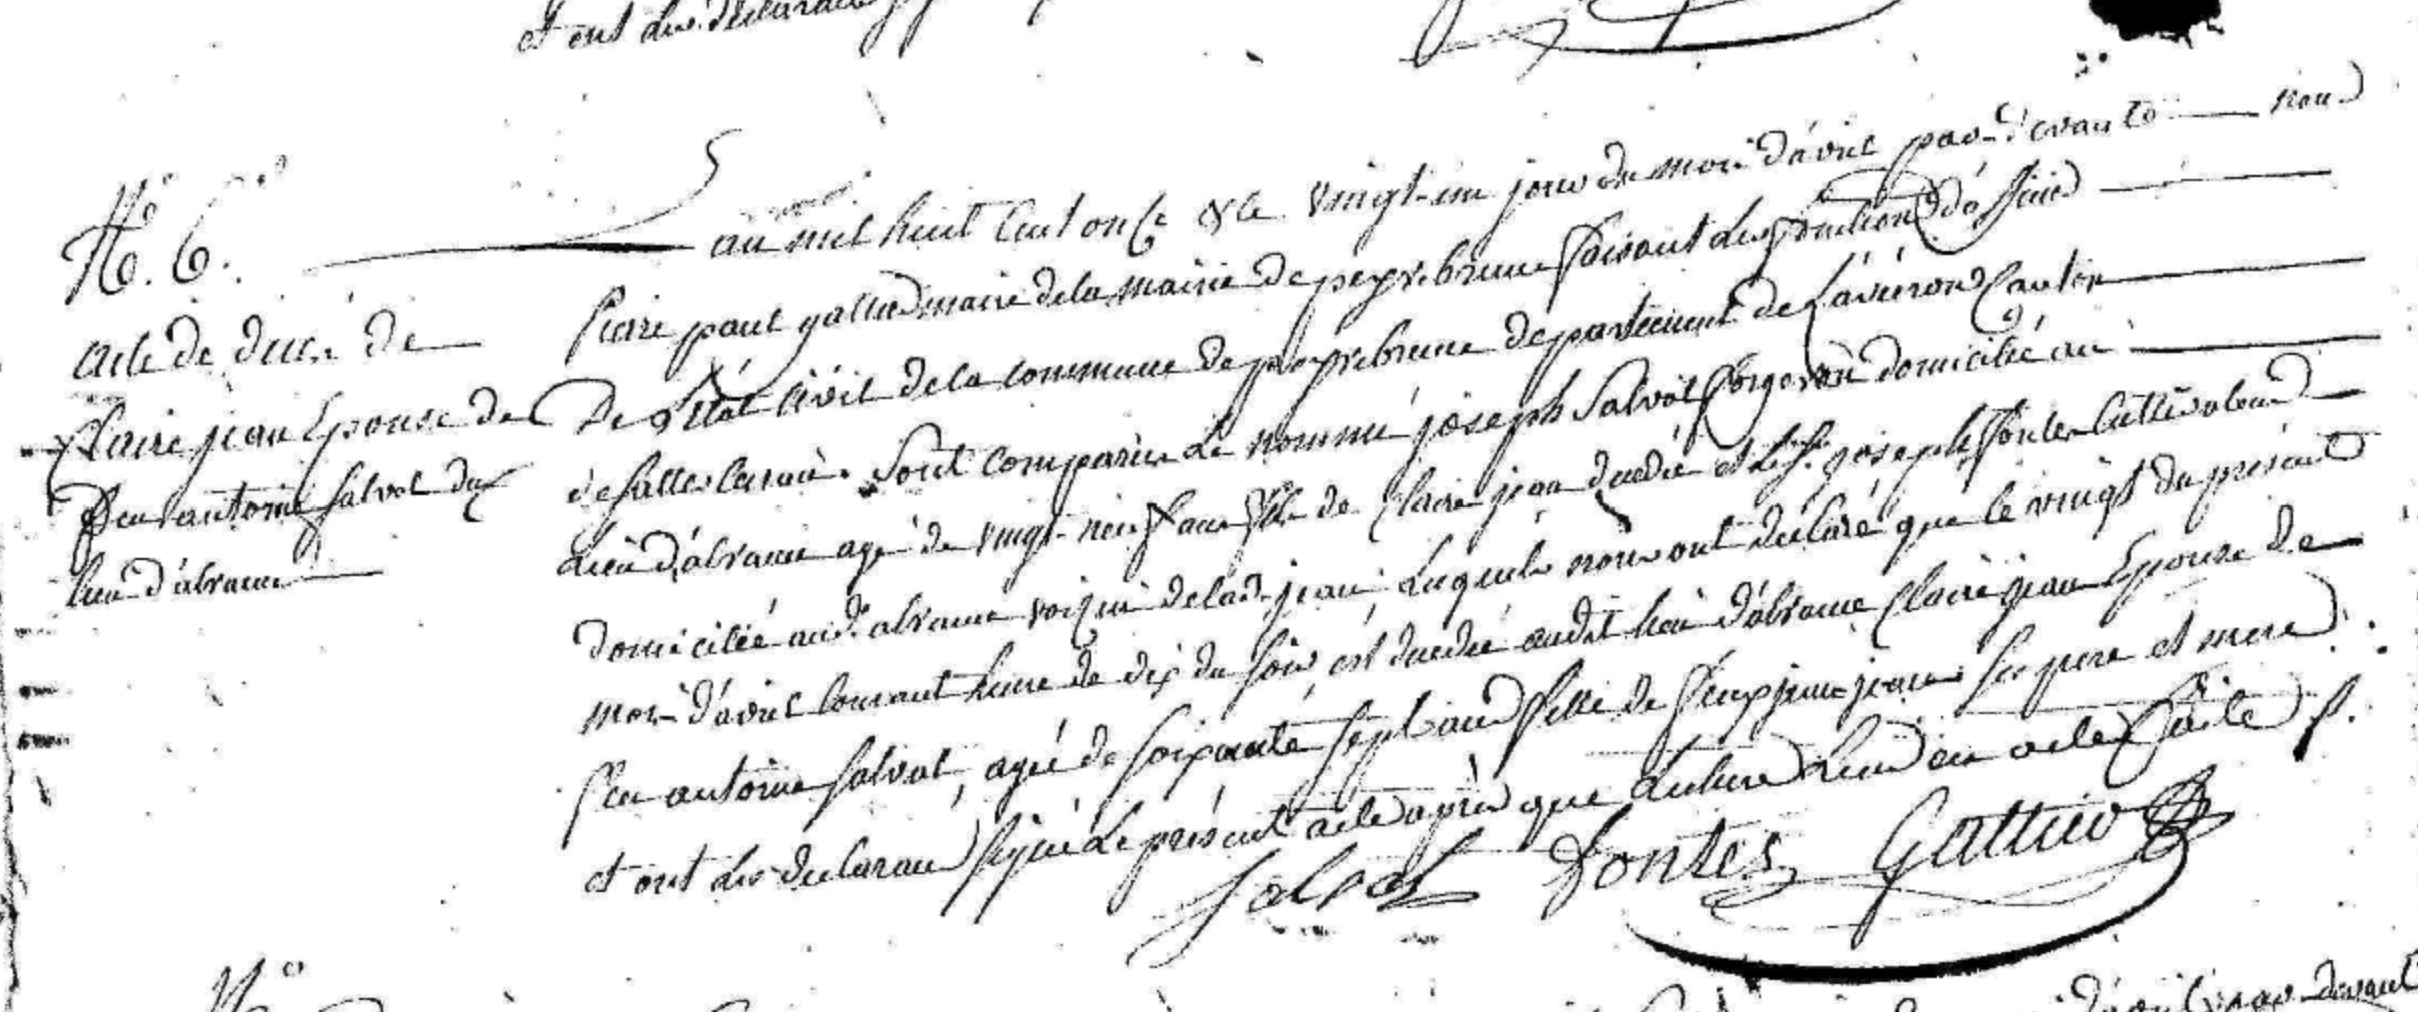 et ont les declarans
N°. 6.
acte de decé de
Claire jean Epouse de
feu antoine Salvat du
lieu d'abraure
au mil huit Cent onse & le vingt-un jour du mois d'avril par-devant nous
Pierre paul gallied maire de la mairie de peyrebrune faisant les fonctions d'officier
de l'état Civil de la commune de peyrebrune departement de L'aveiron Canton
de salles curan. Sont comparus Le nommé joseph Salvat forgeron domicilié au
Lieu d'abraure agé de vingt-neuf ans fils de Claire jean decedée et le Sr. joseph fontes Cultivateur
domicilié aud. abraure voisin de lad. jean, Lesquels nous ont declaré que le vingt du présent
mois d'avril Courant heure de dix du soir, est decedée audit lieu d'abraure Claire jean Epouse de
feu antoine Salvat, agée de soixante sept ans fille de feux jean ses pere et mere
et ont les declarans signé Le présent acte après que Lecture Leur en a été faite
Salvat Fontes Gallied
N°